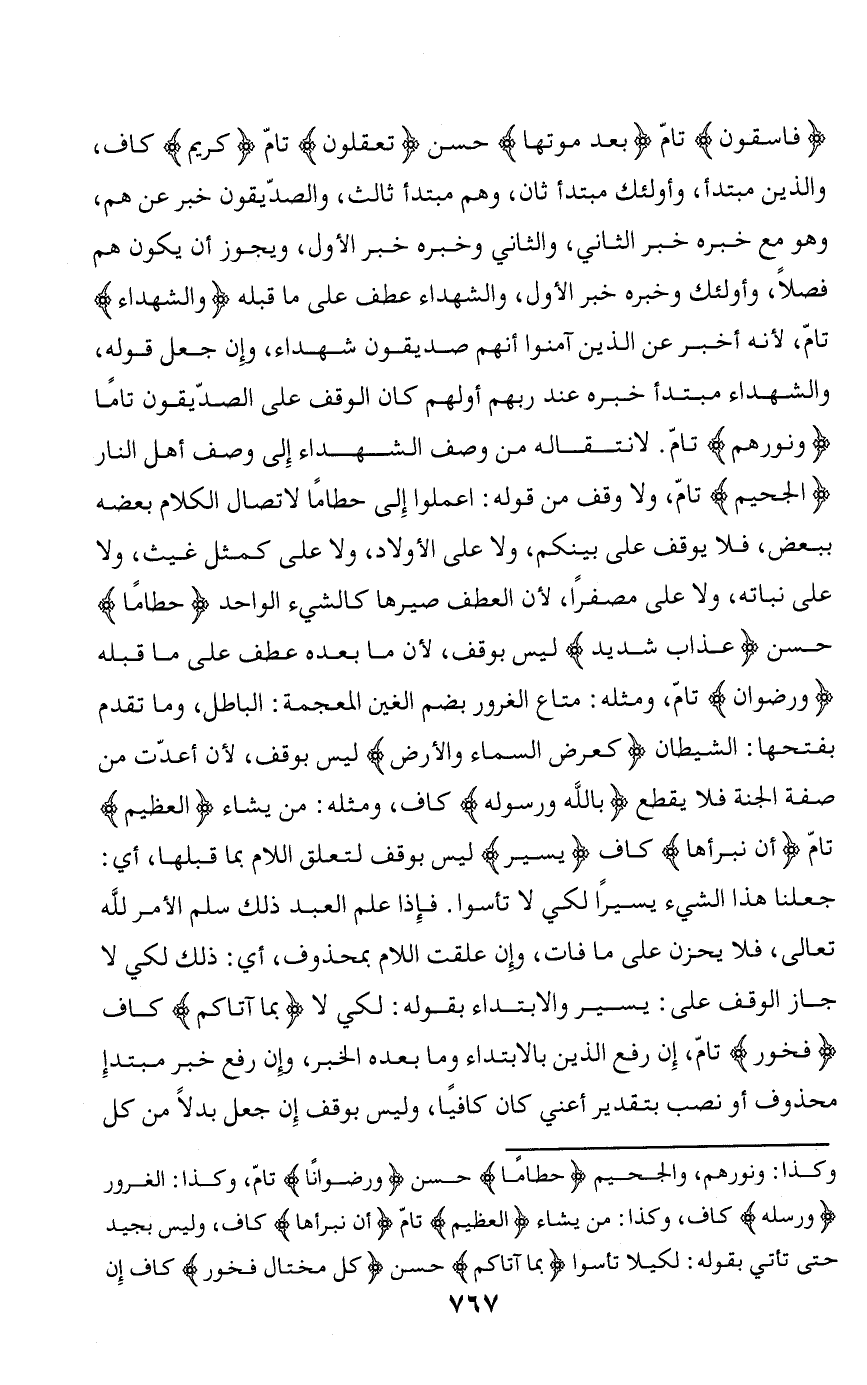 ﴿ فاسقون ﴾ تامّ ﴿ بعد موتها ﴾ حسن ﴿ تعقلون ﴾ تامّ ﴿ كريم ﴾ كاف،
والذين مبتدأ، وأولئك مبتدأ ثان، وهم مبتدأ ثالث، والصدّيقون خبر عن هم،
وهو مع خبره خبر الثاني، والثاني وخبره خبر الأول، ويجوز أن يكون هم
فصلاً، وأولئك وخبره خبر الأول، والشهداء عطف على ما قبله ﴿ والشهداء ﴾
تامّ، لأنه أخبر عن الذين آمنوا أنهم صديقون شهداء، وإن جعل قوله،
والشهداء مبتدأ خبره عند ربهم أولهم كان الوقف على الصدّيقون تامًا
﴿ ونورهم ﴾ تامّ. لانتقاله من وصف الشهداء إلى وصف أهل النار
﴿ الجحيم ﴾ تامّ، ولا وقف من قوله: اعملوا إلى حطامًا لاتصال الكلام بعضه
ببعض، فلا يوقف على بينكم، ولا على الأولاد، ولا على كمثل غيث، ولا
على نباته، ولا على مصفراً، لأن العطف صيرها كالشيء الواحد ﴿ حطامًا ﴾
حسن ﴿ عذاب شديد ﴾ ليس بوقف، لأن ما بعده عطف على ما قبله
﴿ ورضوان ﴾ تامّ، ومثله: متاع الغرور بضم الغين المعجمة: الباطل، وما تقدم
بفتحها: الشيطان ﴿ كعرض السماء والأرض ﴾ ليس بوقف، لأن أعدّت من
صفة الجنة فلا يقطع ﴿ باللَّه ورسوله ﴾ كاف، ومثله: من يشاء ﴿ العظيم ﴾
تامّ ﴿ أن نبرأها ﴾ كاف ﴿ يسير ﴾ ليس بوقف لتعلق اللام بما قبلها، أي:
جعلنا هذا الشيء يسيرًا لكي لا تأسوا. فإذا علم العبد ذلك سلم الأمر للَّه
تعالى، فلا يحزن على ما فات، وإن علقت اللام بمحذوف، أي: ذلك لكي لا
جاز الوقف على: يسير والابتداء بقوله: لكي لا ﴿ بما آتاكم ﴾ كاف
﴿ فخور ﴾ تامّ، إن رفع الذين بالابتداء وما بعده الخبر، وإن رفع خبر مبتدإ
محذوف أو نصب بتقدير أعني كان كافيًا، وليس بوقف إن جعل بدلاً من كل
وكذا: ونورهم، والجحيم ﴿ حطامًا ﴾ حسن ﴿ ورضوانًا ﴾ تامّ، وكذا: الغرور
﴿ ورسله ﴾ كاف، وكذا: من يشاء ﴿ العظيم ﴾ تامّ ﴿ أن نبرأها ﴾ كاف، وليس بجيد
حتى تأتي بقوله: لكيلا تأسوا ﴿ بما آتاكم ﴾ حسن ﴿ كل مختال فخور ﴾ كاف إن
٧٦٧